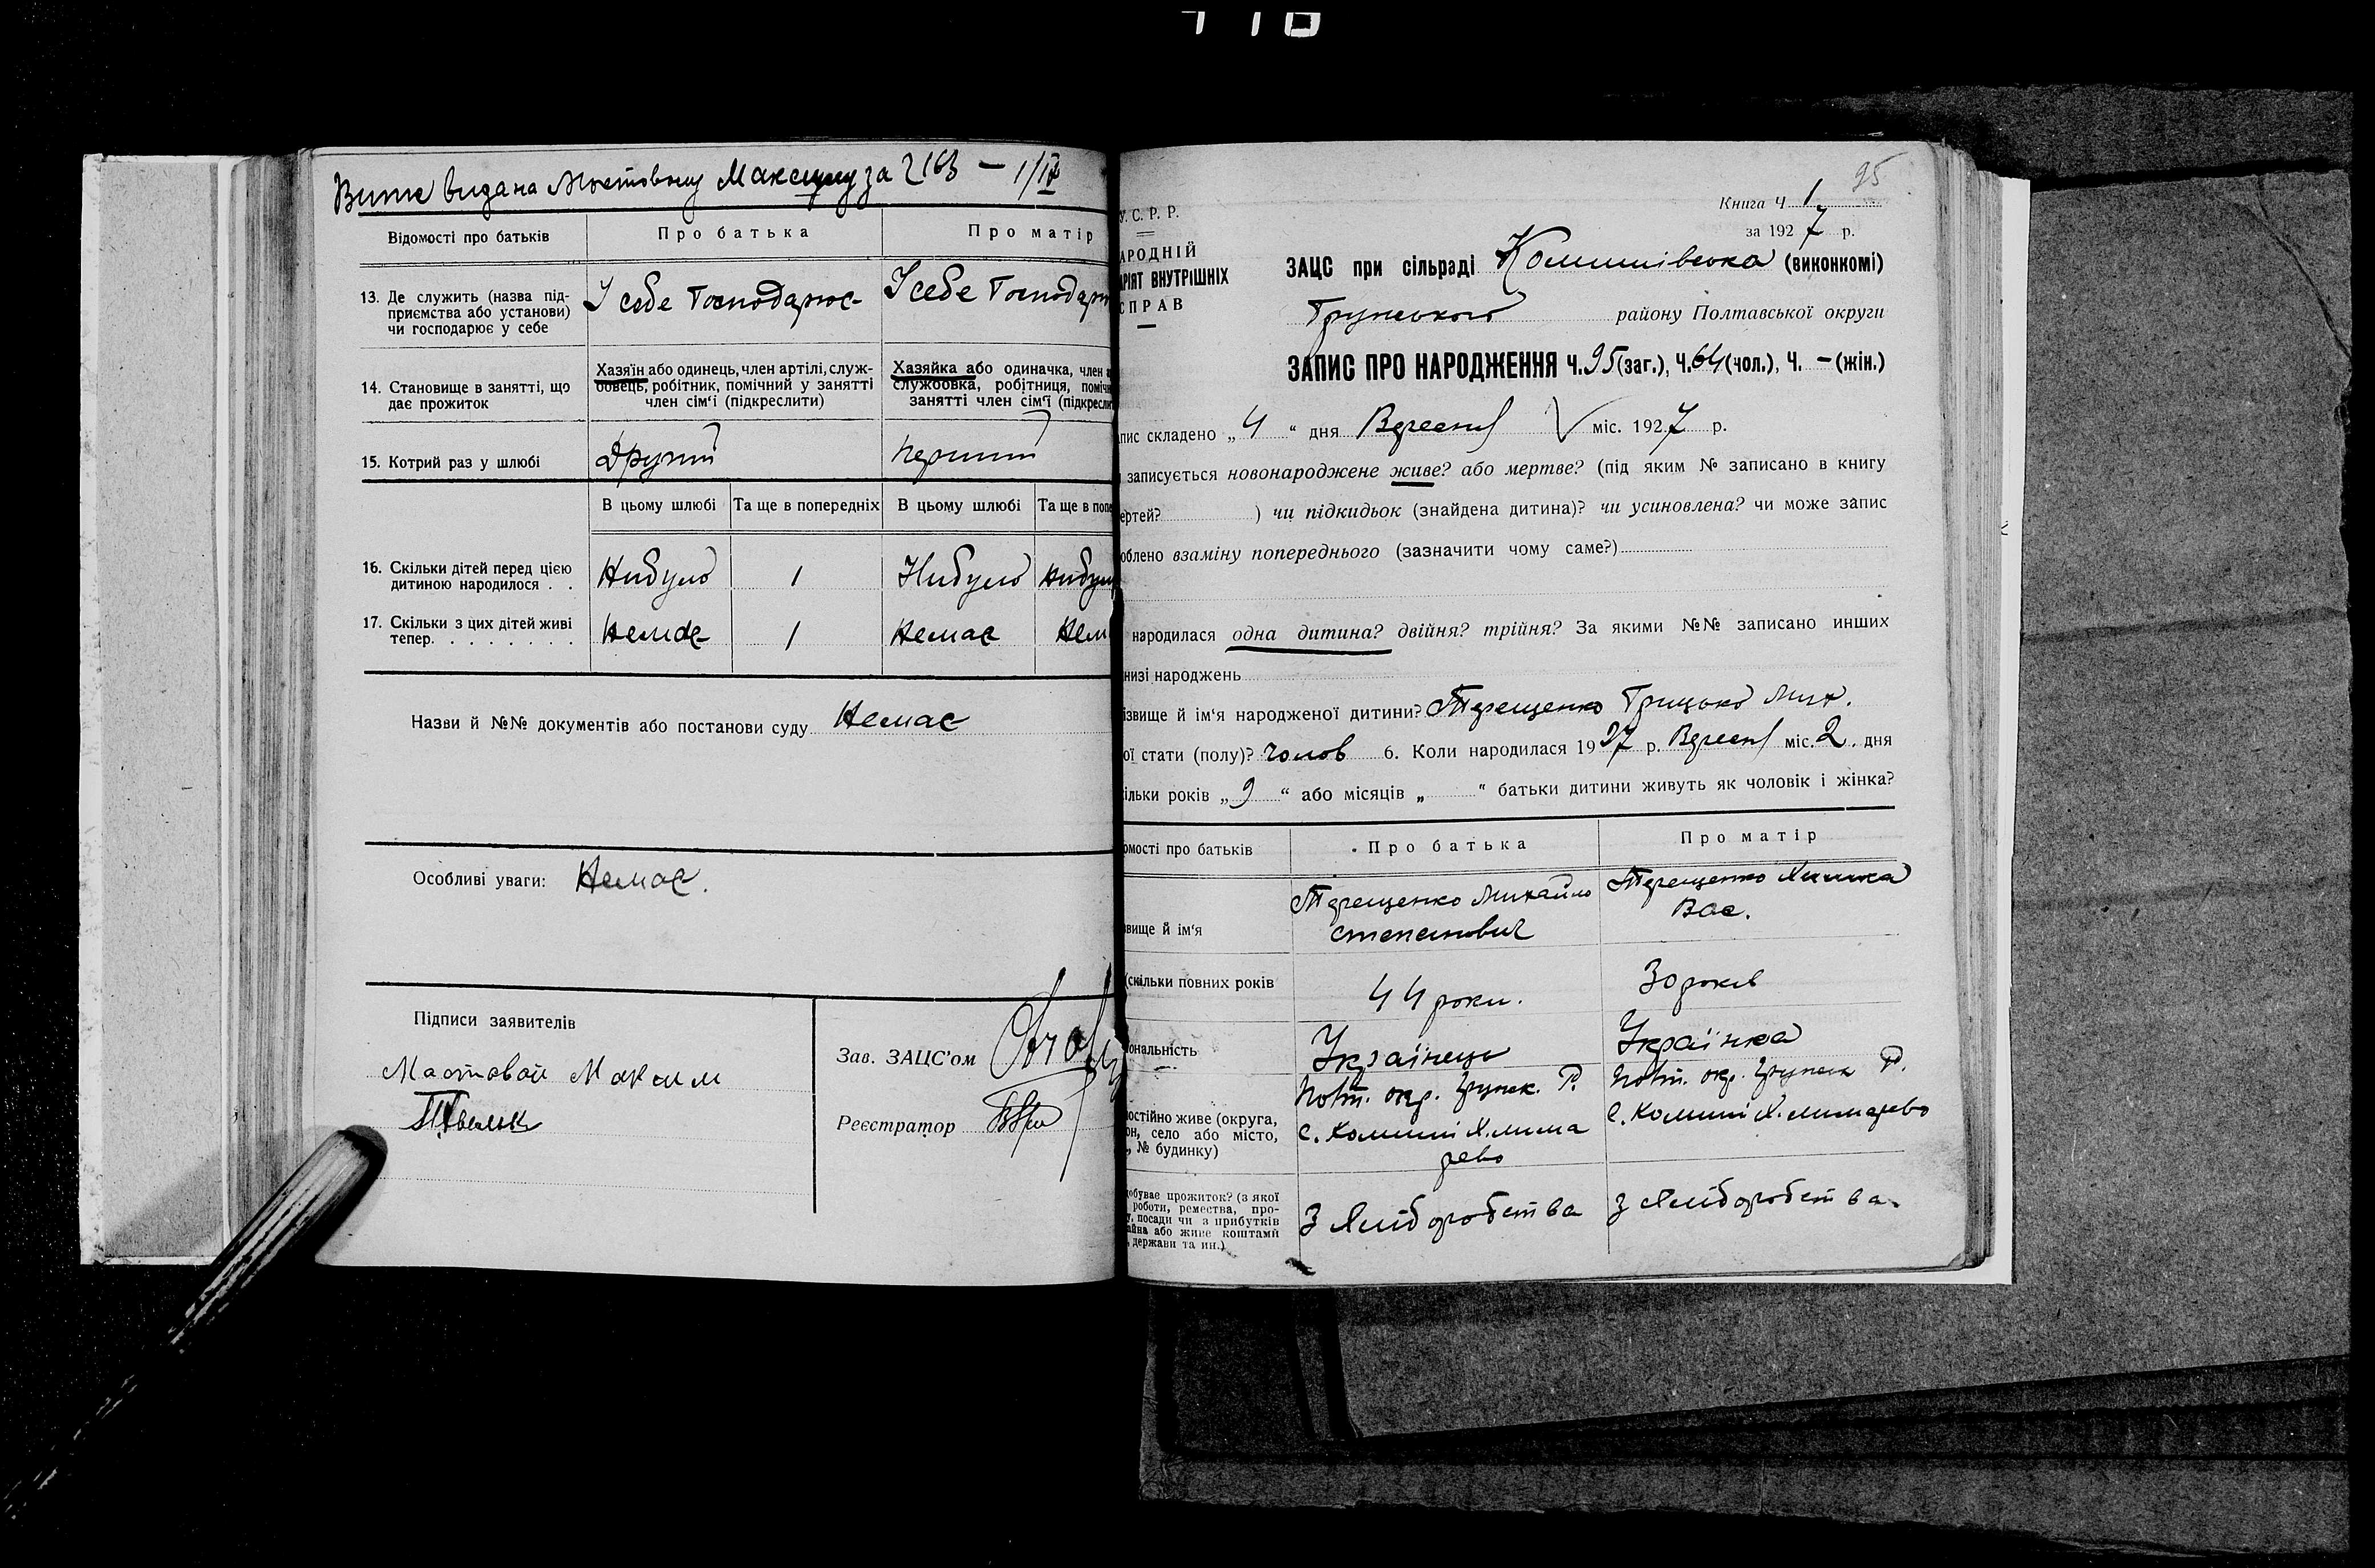 Витяг видана Мостовому Максиму за 2163 — 1/IV
Відомості про батьків Про батька Про матір
13. Де служить (назва під-
приємства або установи)
чи господарює у себе
У себе Господарює У себе Господарю
14. Становище в занятті, що
дає прожиток
Хазяїн або одинець, член артілі, служ-
бовець, робітник, помічний у занятті
член сім'ї (підкреслити)
Хазяйка або одиначка, член а
службовка, робітниця, поміч
занятті член сім'ї (підкресли
15. Котрий раз у шлюбі Другий Перший
В цьому шлюбі Та ще в попередніх В цьому шлюбі Та ще в попе
16. Скільки дітей перед цією
дитиною народилося . .
Небуло 1 Небуло Небуло
17. Скільки з цих дітей живі
тепер. . . . . . . .
Немає 1 Немає Нем
Назви й №№ документів або постанови суду Немає
Особливі уваги: Немає.
Підписи заявителів
Мастовой Максим
Зав. ЗАЦС'ом
Реєстратор
95
Книга Ч 1
за 1927 р.
У. С. Р. Р.
АРОДНІЙ
АРІЯТ ВНУТРІШНІХ
СПРАВ
ЗАЦС при сільраді Комишівська (виконкомі)
Грунського району Полтавської округи
ЗАПИС ПРО НАРОДЖЕННЯ Ч. 95 (заг.), Ч. 64 (чол.), Ч. – (жін.)
пис складено „4“ дня Вересня міс. 1927 р.
записується новонароджене живе? або мертве? (під яким № записано в книгу
ертей? ) чи підкидьок (знайдена дитина)? чи усиновлена? чи може запис
облено взаміну попереднього (зазначити чому саме?)
народилася одна дитина? двійня? трійня? За якими №№ записано инших
низі народжень
ізвище й ім'я народженої дитини? Терещенко Грицько Мих.
ої стати (полу)? чолов 6. Коли народилася 1927 р. Вересн міс. 2. дня
ільки років „9“ або місяців „ “ батьки дитини живуть як чоловік і жінка?
омості про батьків Про батька Про матір
звище й ім'я
Терещенко Михайло
Степанович
Терещенко Химка
Вас.
(скільки повних років 44 роки. 30 років
ональність Українець Українка
постійно живе (округа,
он, село або місто,
, № будинку)
Полт. окр. Грунск. Р.
с. Комиші Х. лима
рево
Полт. окр. Грунськ Р.
с. Комиші Х. лимарево
добуває прожиток? (з якої
роботи, ремества, про-
у, посади чи з прибутків
айна або живе коштами
, держави та ин.)
З Хліборобства З Хліборобства.